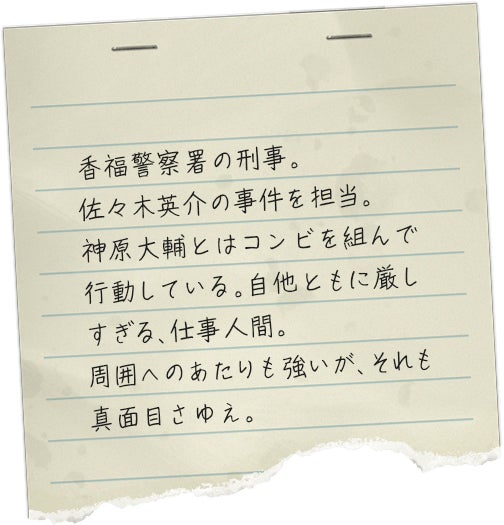 香福警察署の刑事。
佐々木英介の事件を担当。
神原大輔とはコンビを組んで
行動している。自他ともに厳し
すぎる、仕事人間。
周囲へのあたりも強いが、それも
真面目さゆえ。